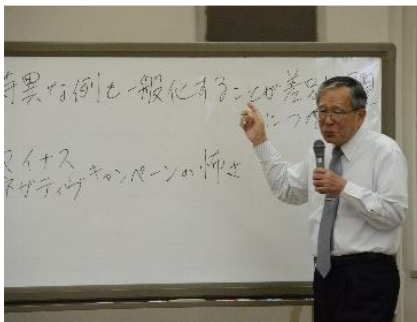 特異な例を一般化することが差別
につな
マイナス
ネガティヴキャンペーンの怖さ